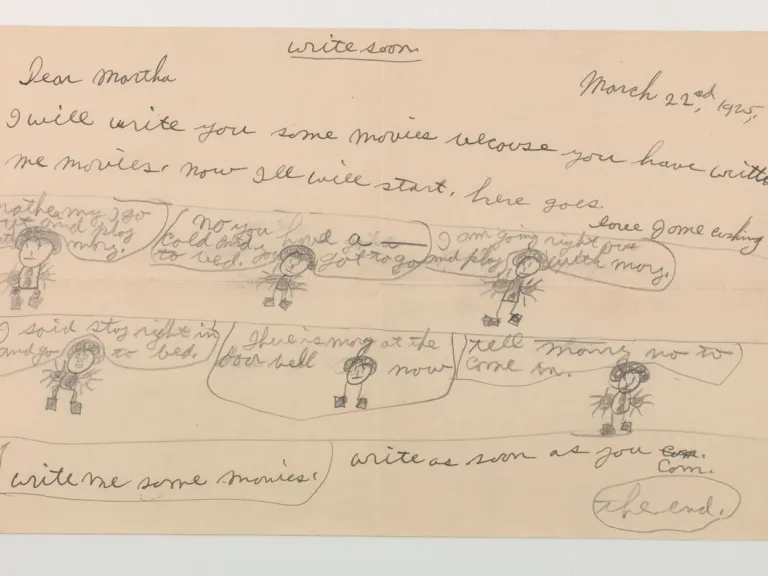 write soon.
Dear Martha
March 22,nd, 1925,
I will write you some movies becouse you have writte
me movies. now Ill will start, here goes.
love Jome cushing
mother may I go
out and play
mary.
No you
cold and have a
to bed. you got to go
I am going right out
and play with mary.
I said stay right in
and go to bed.
There is mary at the
door bell now
tell marry no to
come in.
write me some movies.
write as soon as you com.
Com.
the end.